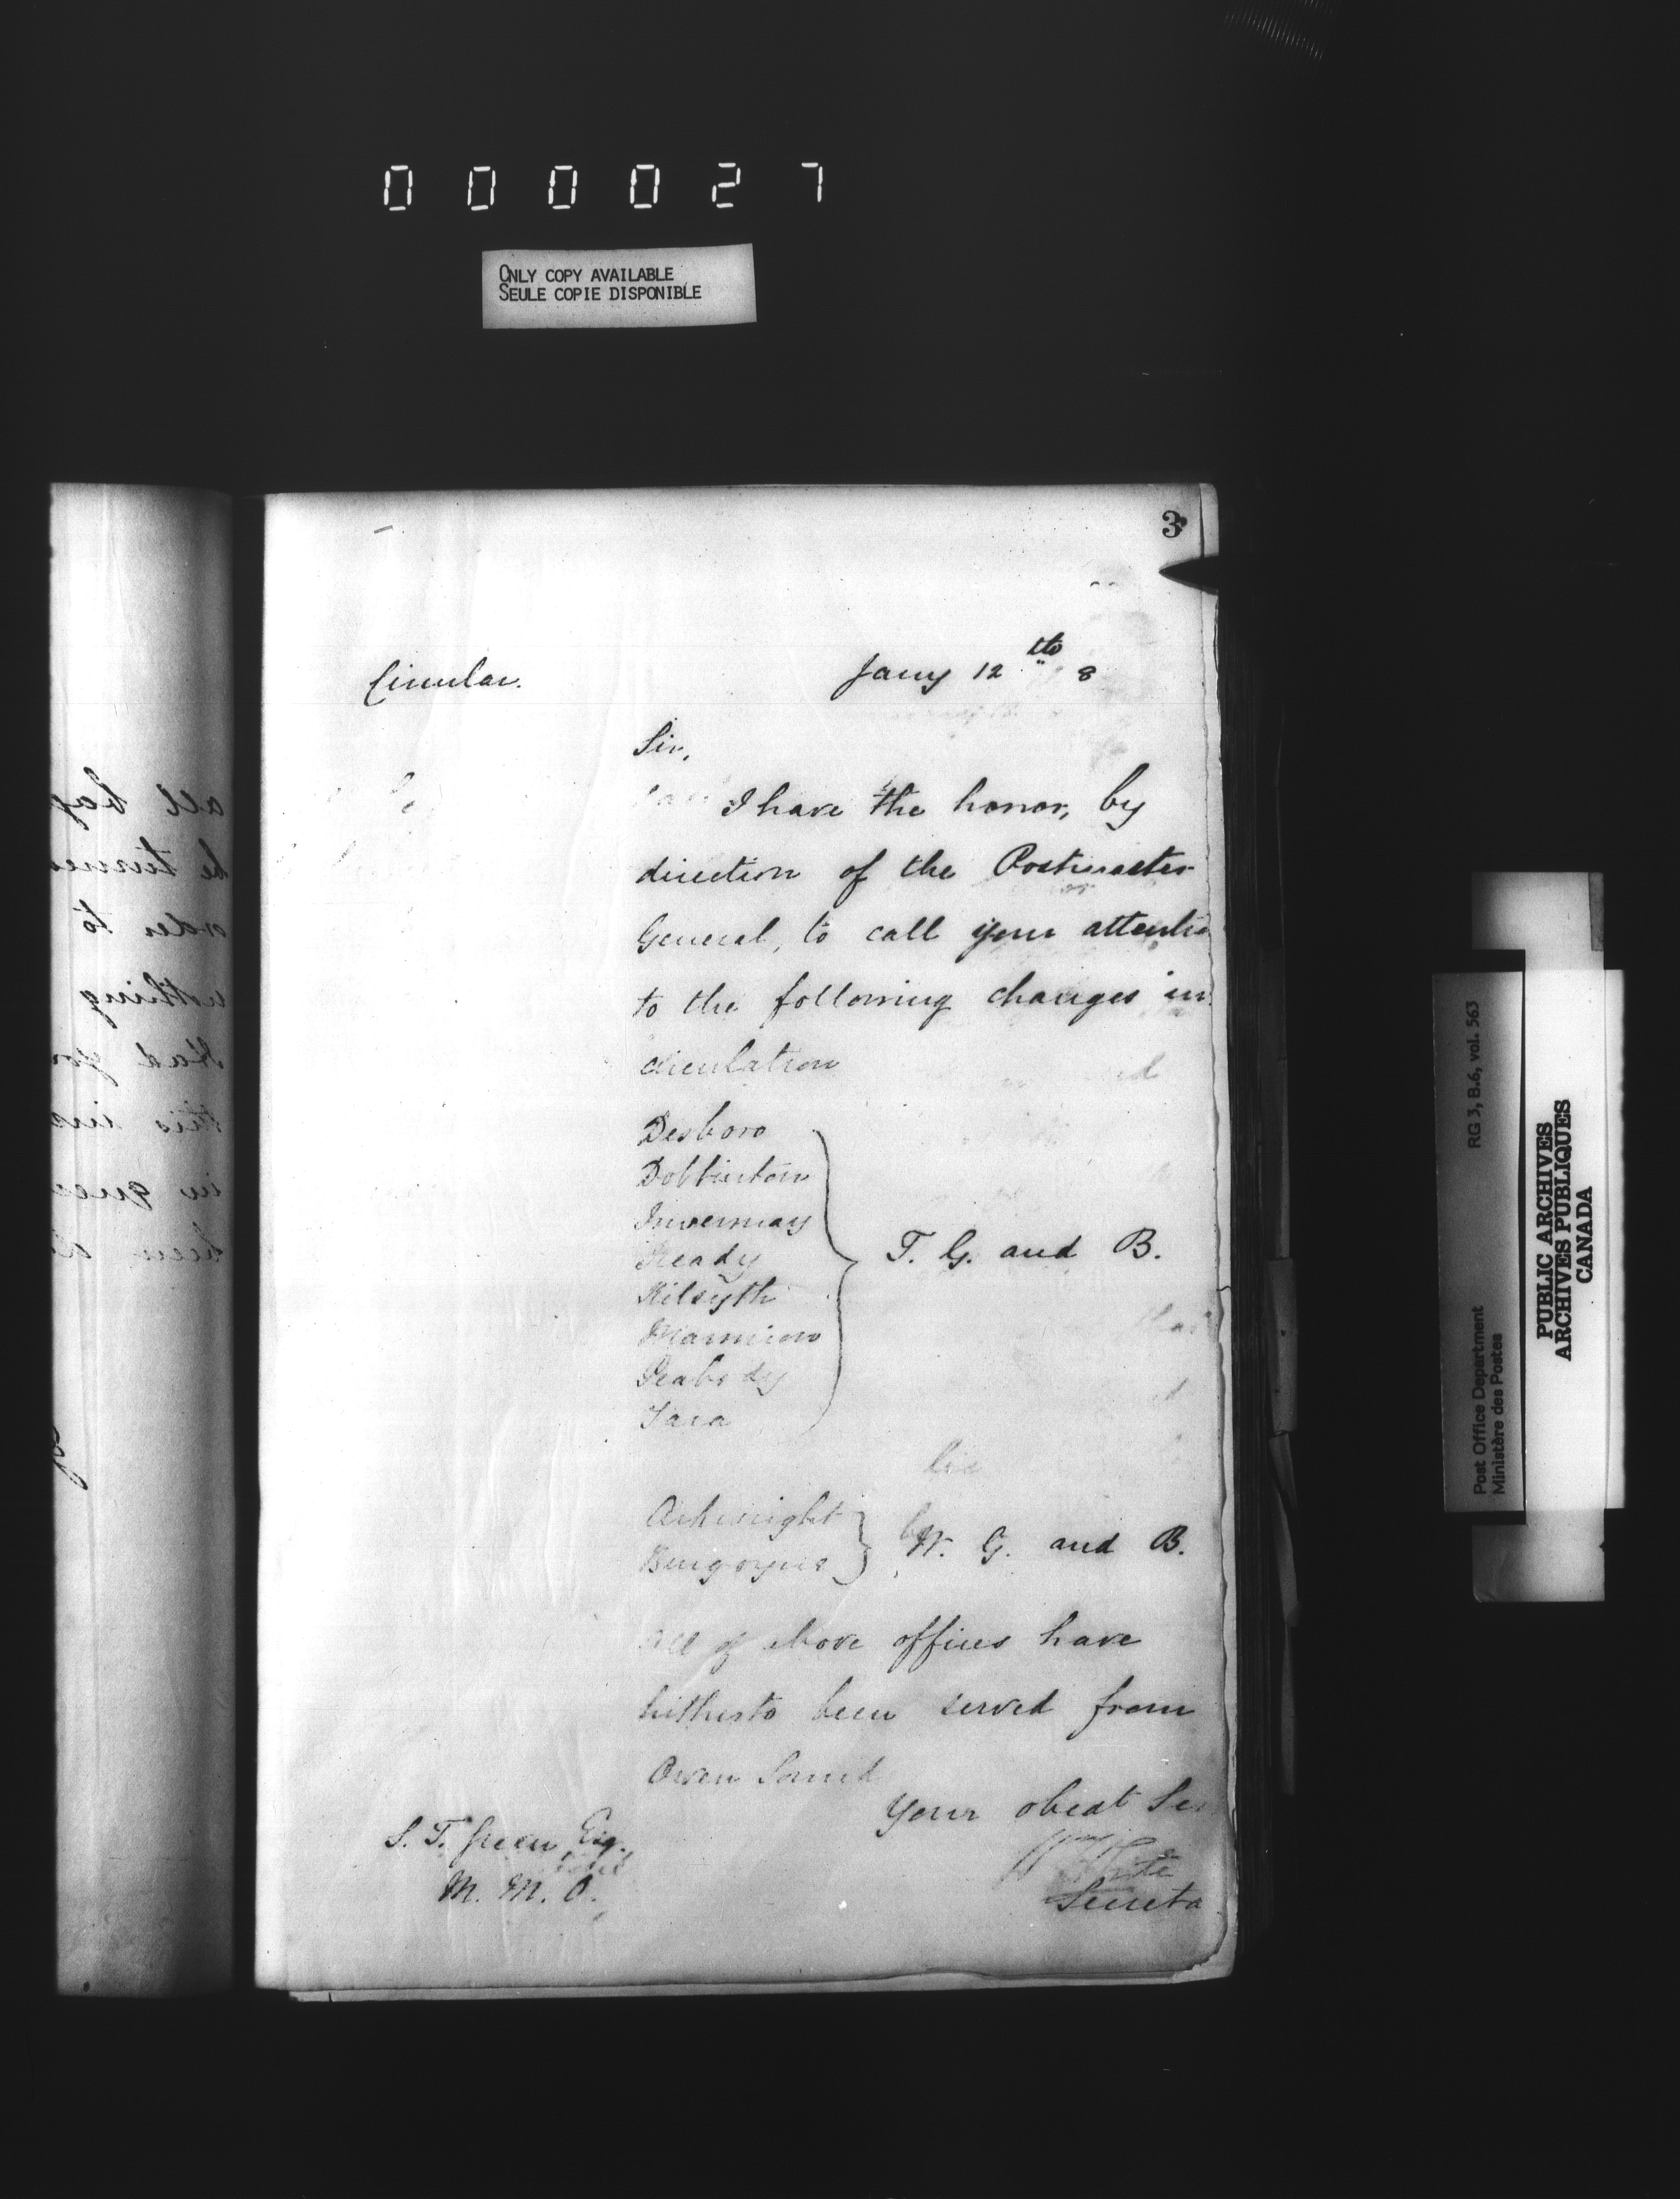 000027
ONLY COPY AVAILABLE
SEULE COPIE DISPONIBLE
3
Circular.
Jany 12th 8
Sir,
I have the honor, by
direction of the Postmaster
General, to call your attentio
to the following changes in
circulation
Desboro
Dobbinton
Invermay
Keady
Kilsyth
Marmion
Peabody
Tara
T. G. and B.
Arkwright
Burgoyne
W. G. and B.
All of above offices have
hitherto been served from
Owen Sound
Your obedt Ser
White
Secreta
S. T. Green, Esq.
M. M. O.
RG 3, B.6, vol. 563
Post Office Department
Ministère des Postes
PUBLIC ARCHIVES
ARCHIVES PUBLIQUES
CANADA